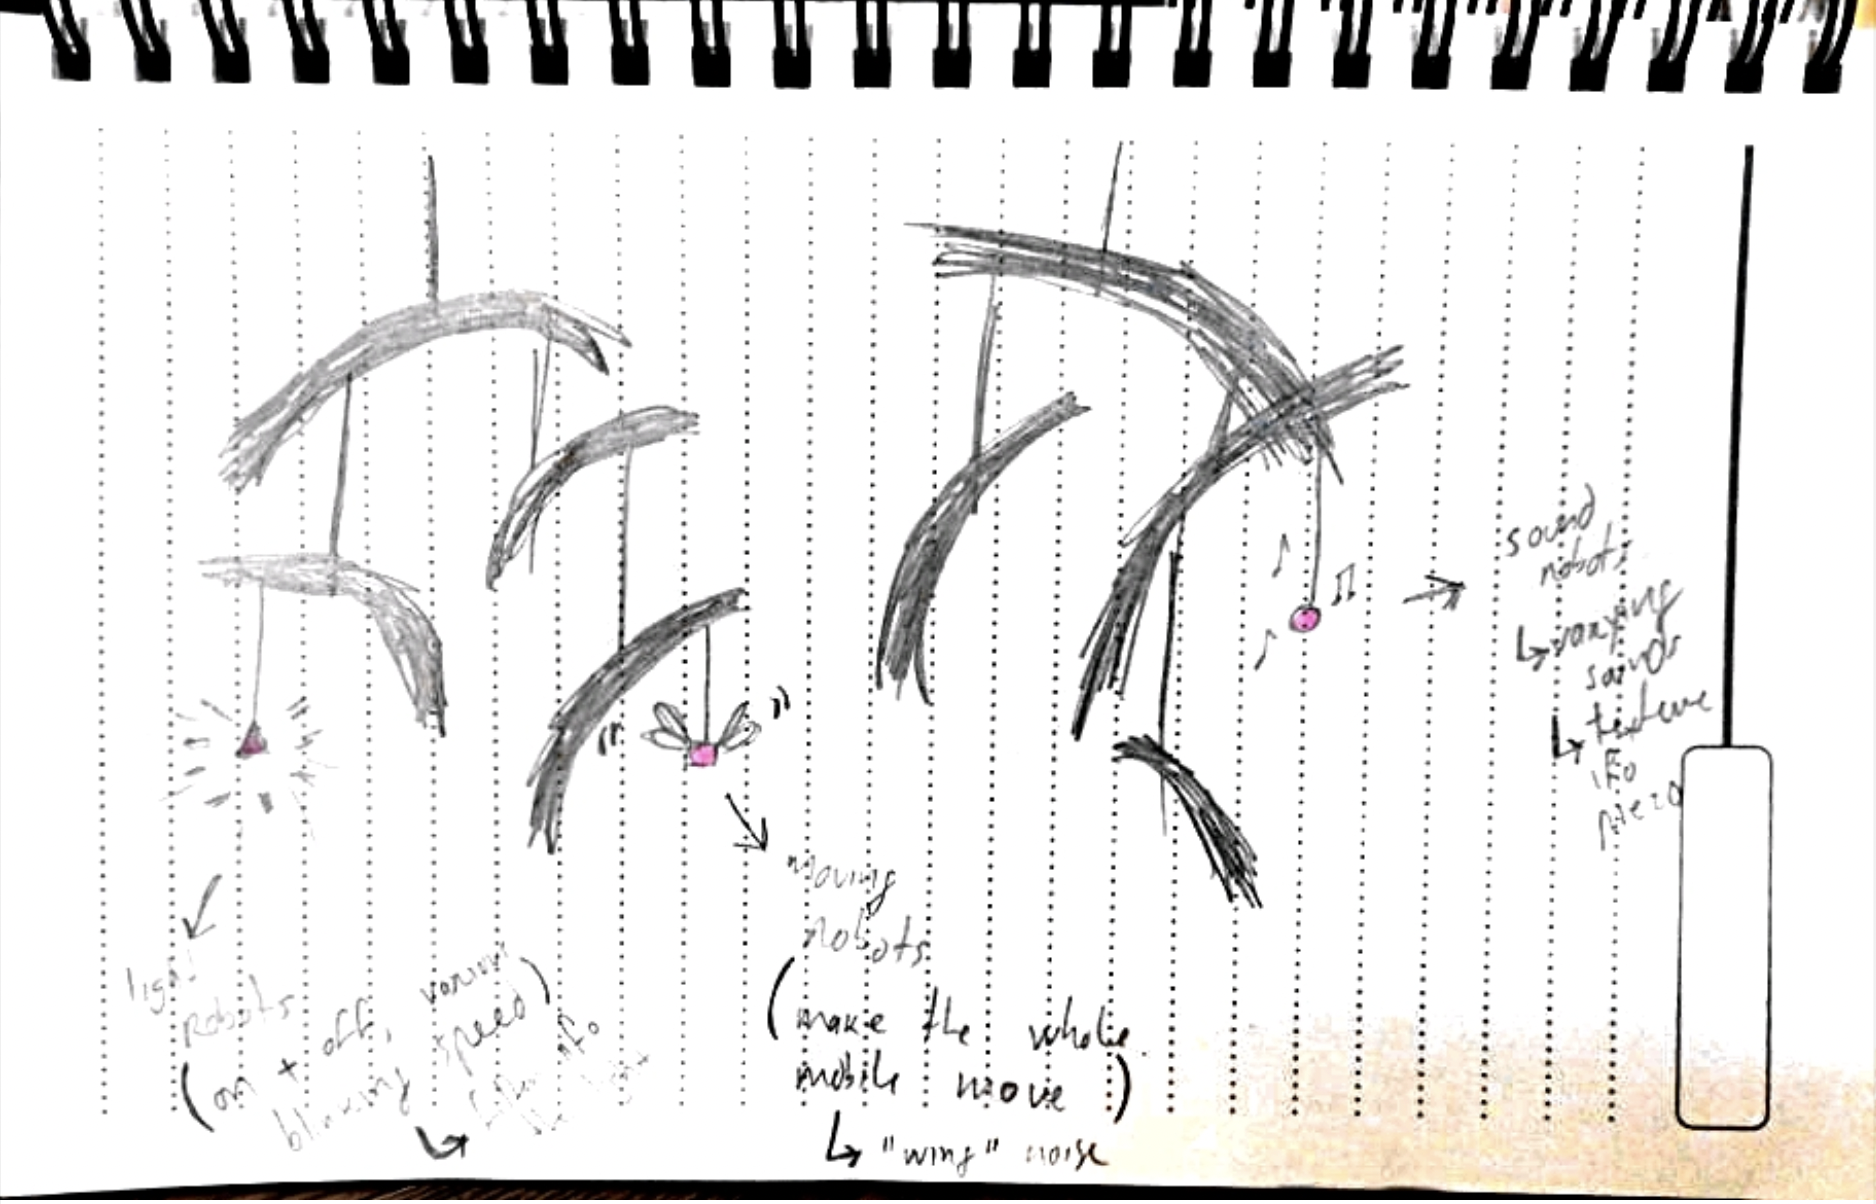 light
Robots
(on + off, various
blinking speed)
moving
Robots
(make the whole
mobile move)
↳ "wing" noise
sound
robots
↳ varying
sounds
↳ texture
piezo